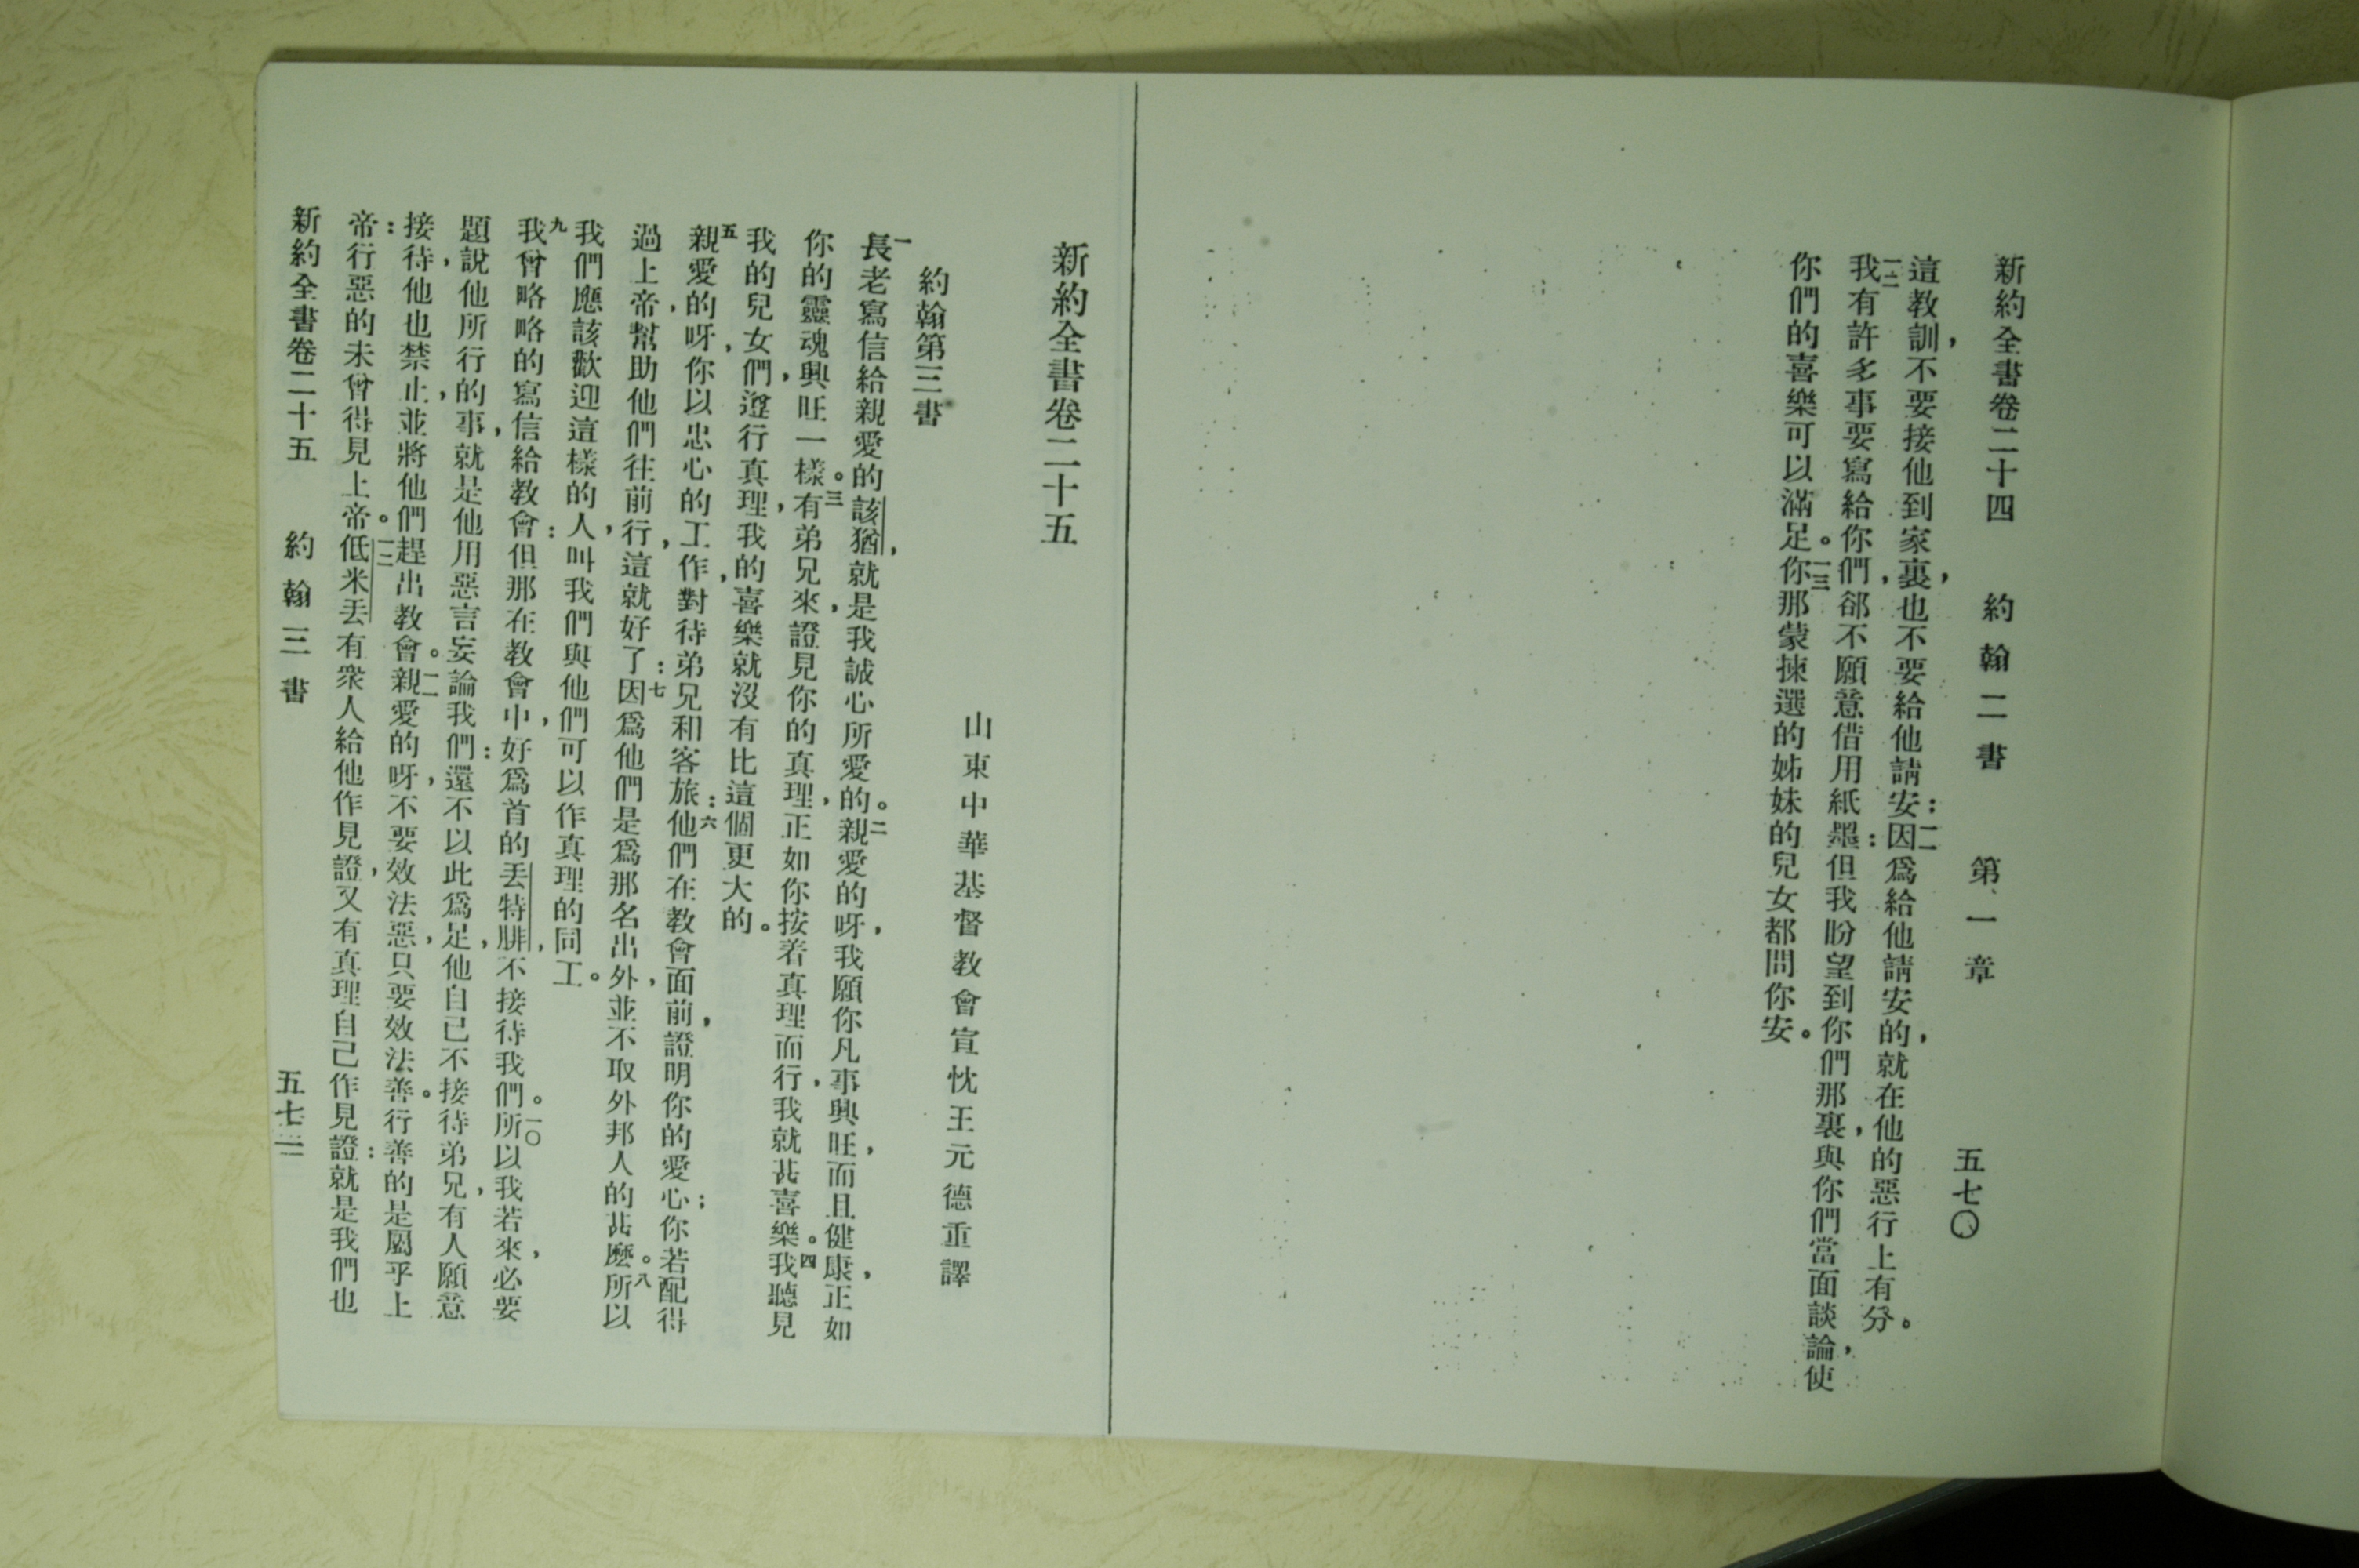 新約全書卷二十四 約翰二書 第一章 五七〇
這教訓,不要接他到家裏,也不要給他請安:一一因爲給他請安的,就在他的惡行上有分。
一二我有許多事要寫給你們,郤不願意借用紙墨:但我盼望到你們那裏,與你們當面談論,使
你們的喜樂可以滿足。一三你那蒙揀選的姊妹的兒女都問你安。
新約全書卷二十五
山東中華基督教會宣忱王元德重譯
約翰第三書
一長老寫信給親愛的該猶,就是我誠心所愛的。二親愛的呀,我願你凡事興旺,而且健康,正如
你的靈魂興旺一樣。三有弟兄來,證見你的真理,正如你按着真理而行,我就甚喜樂。四我聽見
我的兒女們,遵行真理,我的喜樂就沒有比這個更大的。
五親愛的呀,你以忠心的工作,對待弟兄和客旅:六他們在教會面前,證明你的愛心;你若配得
過上帝,幫助他們往前行,這就好了:七因爲他們是爲那名出外,並不取外邦人的甚麽。八所以
我們應該歡迎這樣的人,叫我們與他們可以作真理的同工。
九我曾略略的寫信給教會:但那在教會中,好爲首的丟特腓,不接待我們。一〇所以我若來,必要
題說他所行的事,就是他用惡言妄論我們:還不以此爲足,他自己不接待弟兄,有人願意
接待,他也禁止,並將他們趕出教會。一一親愛的呀,不要效法惡,只要效法善。行善的是屬乎上
帝:行惡的未曾得見上帝。一二低米丟有衆人給他作見證,又有真理自己作見證:就是我們也
新約全書卷二十五 約翰三書 五七一